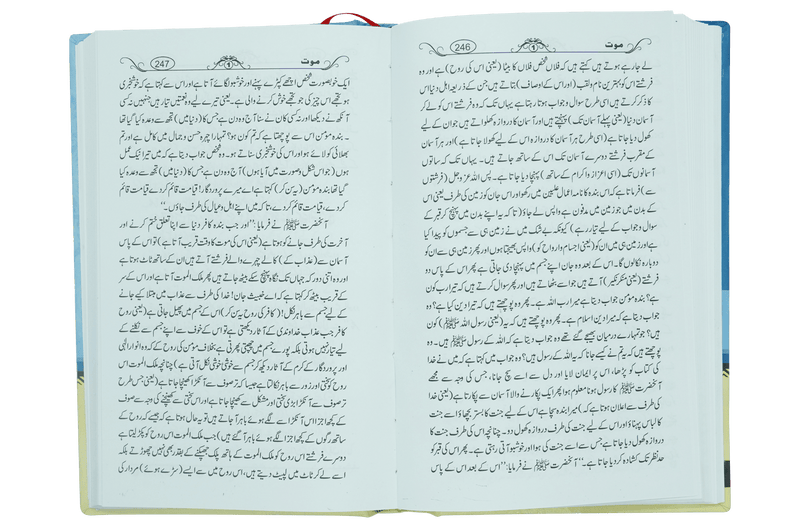 موت 1 246
لے جارہے ہوتے ہیں کہتے ہیں کہ فلاں شخص فلاں کا بیٹا (یعنی اس کی روح) ہے اور وہ
فرشتے اس کو بہترین نام و لقب (اور اس کے اوصاف) بتاتے ہیں جن کے ذریعہ اہل دنیا اس
کا ذکر کرتے ہیں اسی طرح سوال و جواب ہوتا رہتا ہے یہاں تک کہ وہ فرشتے اس کو لے کر
آسمان دنیا (یعنی پہلے آسمان تک) پہنچتے ہیں اور آسمان کا دروازہ کھلواتے ہیں جو ان کے لیے
کھول دیا جاتا ہے (اسی طرح ہر آسمان کا دروازہ اس کے لیے کھولا جاتا ہے) اور ہر آسمان
کے مقرب فرشتے دوسرے آسمان تک اس کے ساتھ جاتے ہیں۔ یہاں تک کہ ساتوں
آسمانوں تک (اسی اعزاز و اکرام کے ساتھ) پہنچا دیا جاتا ہے۔ پس اللہ عزوجل (فرشتوں
سے) فرماتا ہے کہ اس بندہ کا نامہ اعمال علیین میں رکھو اور اس جان کو زمین کی طرف یعنی اس
کے بدن میں جو زمین میں مدفون ہے واپس لے جاؤ (تاکہ یہ اپنے بدن میں پہنچ کر قبر کے
سوال و جواب کے لیے تیار رہے) کیونکہ بے شک میں نے زمین ہی سے جسموں کو پیدا کیا
ہے اور زمین ہی میں ان کو (یعنی اجسام و ارواح کو) واپس بھیجتا ہوں اور پھر زمین ہی سے ان کو
دوبارہ نکالوں گا۔ اس کے بعد وہ جان اپنے جسم میں پہنچا دی جاتی ہے پھر اس کے پاس دو
فرشتے (یعنی منکر نکیر) آتے ہیں جو اسے بٹھاتے ہیں اور پھر سوال کرتے ہیں کہ تیرا رب کون
ہے؟ بندہ مومن جواب دیتا ہے میرا رب اللہ ہے۔ پھر وہ پوچھتے ہیں کہ تیرا دین کیا ہے؟ وہ
جواب دیتا ہے کہ میرا دین اسلام ہے۔ پھر وہ پوچھتے ہیں کہ یہ (یعنی رسول اللہ ﷺ) کون
ہیں؟ جو تمہارے درمیان بھیجے گئے تھے وہ جواب دیتا ہے کہ اللہ کے رسول ہیں۔ وہ
پوچھتے ہیں کہ یہ تم نے کیسے جانا کہ یہ اللہ کے رسول ہیں؟ وہ جواب میں کہتا ہے کہ میں نے خدا
کی کتاب کو پڑھا، اس پر ایمان لایا اور دل سے اسے سچ جانا، جس کی وجہ سے مجھے
آنحضرت ﷺ کا رسول ہونا معلوم ہوا پھر ایک پکارنے والا آسمان سے پکارتا ہے (یعنی خدا
کی طرف سے اعلان ہوتا ہے کہ) میرا بندہ سچا ہے اس کے لیے جنت کا بستر بچھاؤ اسے جنت
کا لباس پہناؤ اور اس کے لیے جنت کی طرف دروازہ کھول دو۔ چنانچہ اس کی طرف جنت کا
دروازہ کھول دیا جاتا ہے جس سے اسے جنت کی ہوا اور خوشبو آتی رہتی ہے۔ پھر اس کی قبر کو
حد نظر تک کشادہ کر دیا جاتا ہے۔“ آنحضرت ﷺ نے فرمایا: ”اس کے بعد اس کے پاس
موت 1 247
ایک خوبصورت شخص اچھے کپڑے پہنے اور خوشبو لگائے آتا ہے اور اس سے کہتا ہے کہ خوشخبری
ہو تجھے اس چیز کی جو تجھے خوش کرنے والی ہے۔ یعنی تیرے لیے وہ نعمتیں تیار ہیں جنہیں نہ کسی
آنکھ نے دیکھا اور نہ کسی کان نے سنا آج وہ دن ہے جس کا (دنیا میں) تجھ سے وعدہ کیا گیا تھا
۔ بندہ مومن اس سے پوچھتا ہے کہ تم کون ہو؟ تمہارا چہرہ حسن و جمال میں کامل ہے اور تم
بھلائی کو لائے ہو اور اس کی خوشخبری سناتے ہو۔ وہ شخص جواب دیتا ہے کہ میں تیرا نیک عمل
ہوں (جو اس شکل و صورت میں آیا ہوں) آج وہ دن ہے جس کا (دنیا میں) تجھ سے وعدہ کیا
گیا تھا بندہ مومن (یہ سن کر) کہتا ہے اے میرے پروردگار! قیامت قائم کر دے، قیامت قائم
کر دے، قیامت قائم کر دے، تاکہ میں اپنے اہل و عیال کی طرف جاؤں۔“
آنحضرت ﷺ نے فرمایا: ”اور جب بندہ کافر دنیا سے اپنا تعلق ختم کرنے اور
آخرت کی طرف جانے کو ہوتا ہے (یعنی اس کی موت کا وقت قریب آتا ہے) تو اس کے پاس
آسمان سے (عذاب کے) کالے چہرے والے فرشتے آتے ہیں ان کے ساتھ ٹاٹ ہوتا ہے
اور وہ اتنی دور کہ جہاں تک نگاہ پہنچ سکے بیٹھ جاتے ہیں پھر ملک الموت آتا ہے اور اس کے سر
کے قریب بیٹھ کر کہتا ہے کہ اے خبیث جان! خدا کی طرف سے عذاب میں مبتلا کیے جانے
کے لیے جسم سے باہر نکل! (کافر کی روح یہ سن کر) اس کے جسم میں پھیل جاتی ہے (یعنی روح
کافر جب عذاب خداوندی کے آثار دیکھتی ہے تو اس کے خوف سے اپنے جسم سے نکلنے کے
لیے تیار نہیں ہوتی بلکہ پورے جسم میں چھپتی پھرتی ہے بخلاف مومن کی روح کے کہ وہ انوار الٰہی
اور پروردگار کے کرم کے آثار دیکھ کر جسم سے خوشی خوشی نکل آتی ہے) چنانچہ ملک الموت اس
روح کو سختی اور زور سے باہر نکالتا ہے جیسا کہ تر صوف سے آنکڑا کھینچا جاتا ہے (یعنی جس طرح
تر صوف سے آنکڑا بڑی سختی اور مشکل سے کھینچا جاتا ہے اور اس سختی سے کھینچنے کی وجہ سے صوف
کے کچھ اجزا اس آنکڑا سے لگے ہوئے باہر آ جاتے ہیں تو یہ حال ہوتا ہے کہ جیسے کہ روح کے
ساتھ رگوں کے کچھ اجزا لگے ہوئے باہر آ گئے ہیں) جب ملک الموت اس روح کو پکڑ لیتا ہے
دوسرے فرشتے اس روح کو ملک الموت کے ہاتھ پلک جھپکنے کے بقدر بھی نہیں چھوڑتے بلکہ
اسے لے کر ٹاٹ میں لپیٹ دیتے ہیں، اس روح میں سے ایسے (سڑے ہوئے) مردار کی